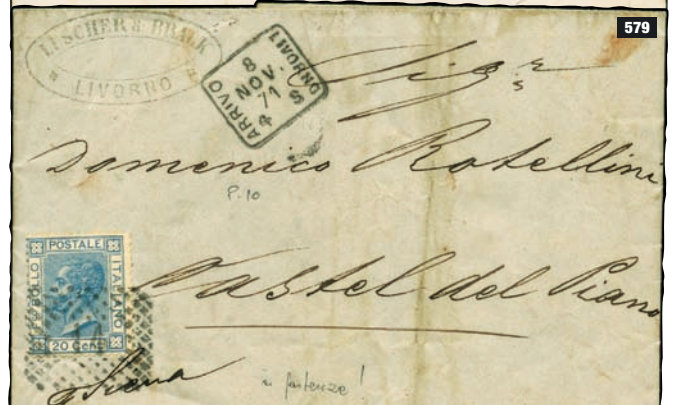 579
LESCHER & BRACK
LIVORNO
LIVORNO
8
NOV.
71
4 S
ARRIVO
Sigr
Domenico Rotellini
P. 10
POSTALE
BOLLO
ITALIANO
20 Cent
Castel del Piano
Siena
in partenza!